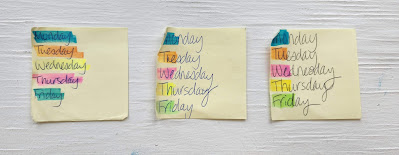 Monday
Tuesday
Wednesday
Thursday
Friday
Monday
Tuesday
Wednesday
Thursday
Friday
Monday
Tuesday
Wednesday
Thursday
Friday